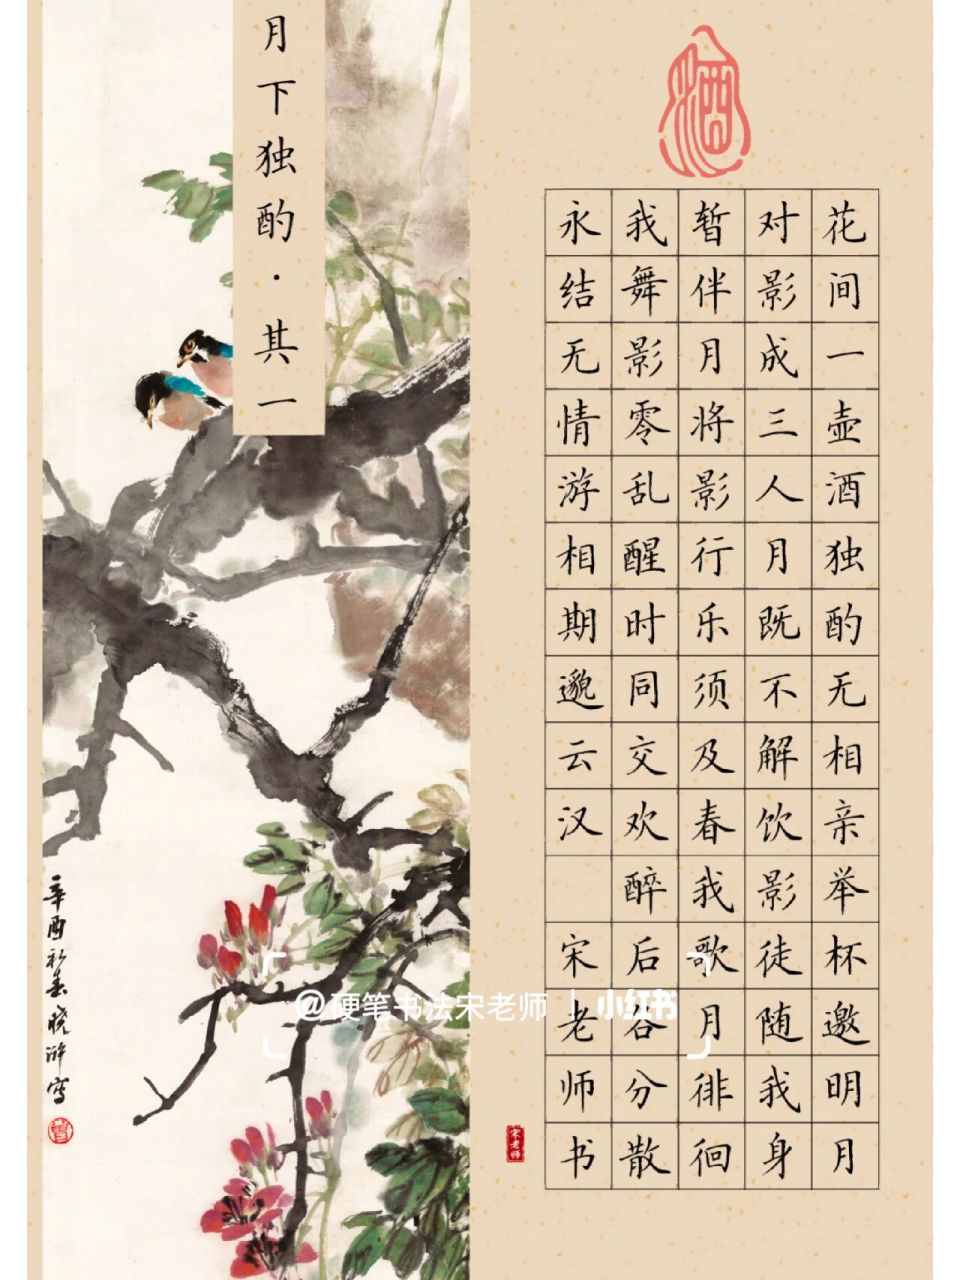 月下独酌·其一
酒
花间一壶酒独酌无相亲举杯邀明月
对影成三人月既不解饮影徒随我身
暂伴月将影行乐须及春我歌月徘徊
我舞影零乱醒时同交欢醉后各分散
永结无情游相期邈云汉 宋老师书
宋老师
辛酉初春晓游写
@硬笔书法宋老师 | 小红书